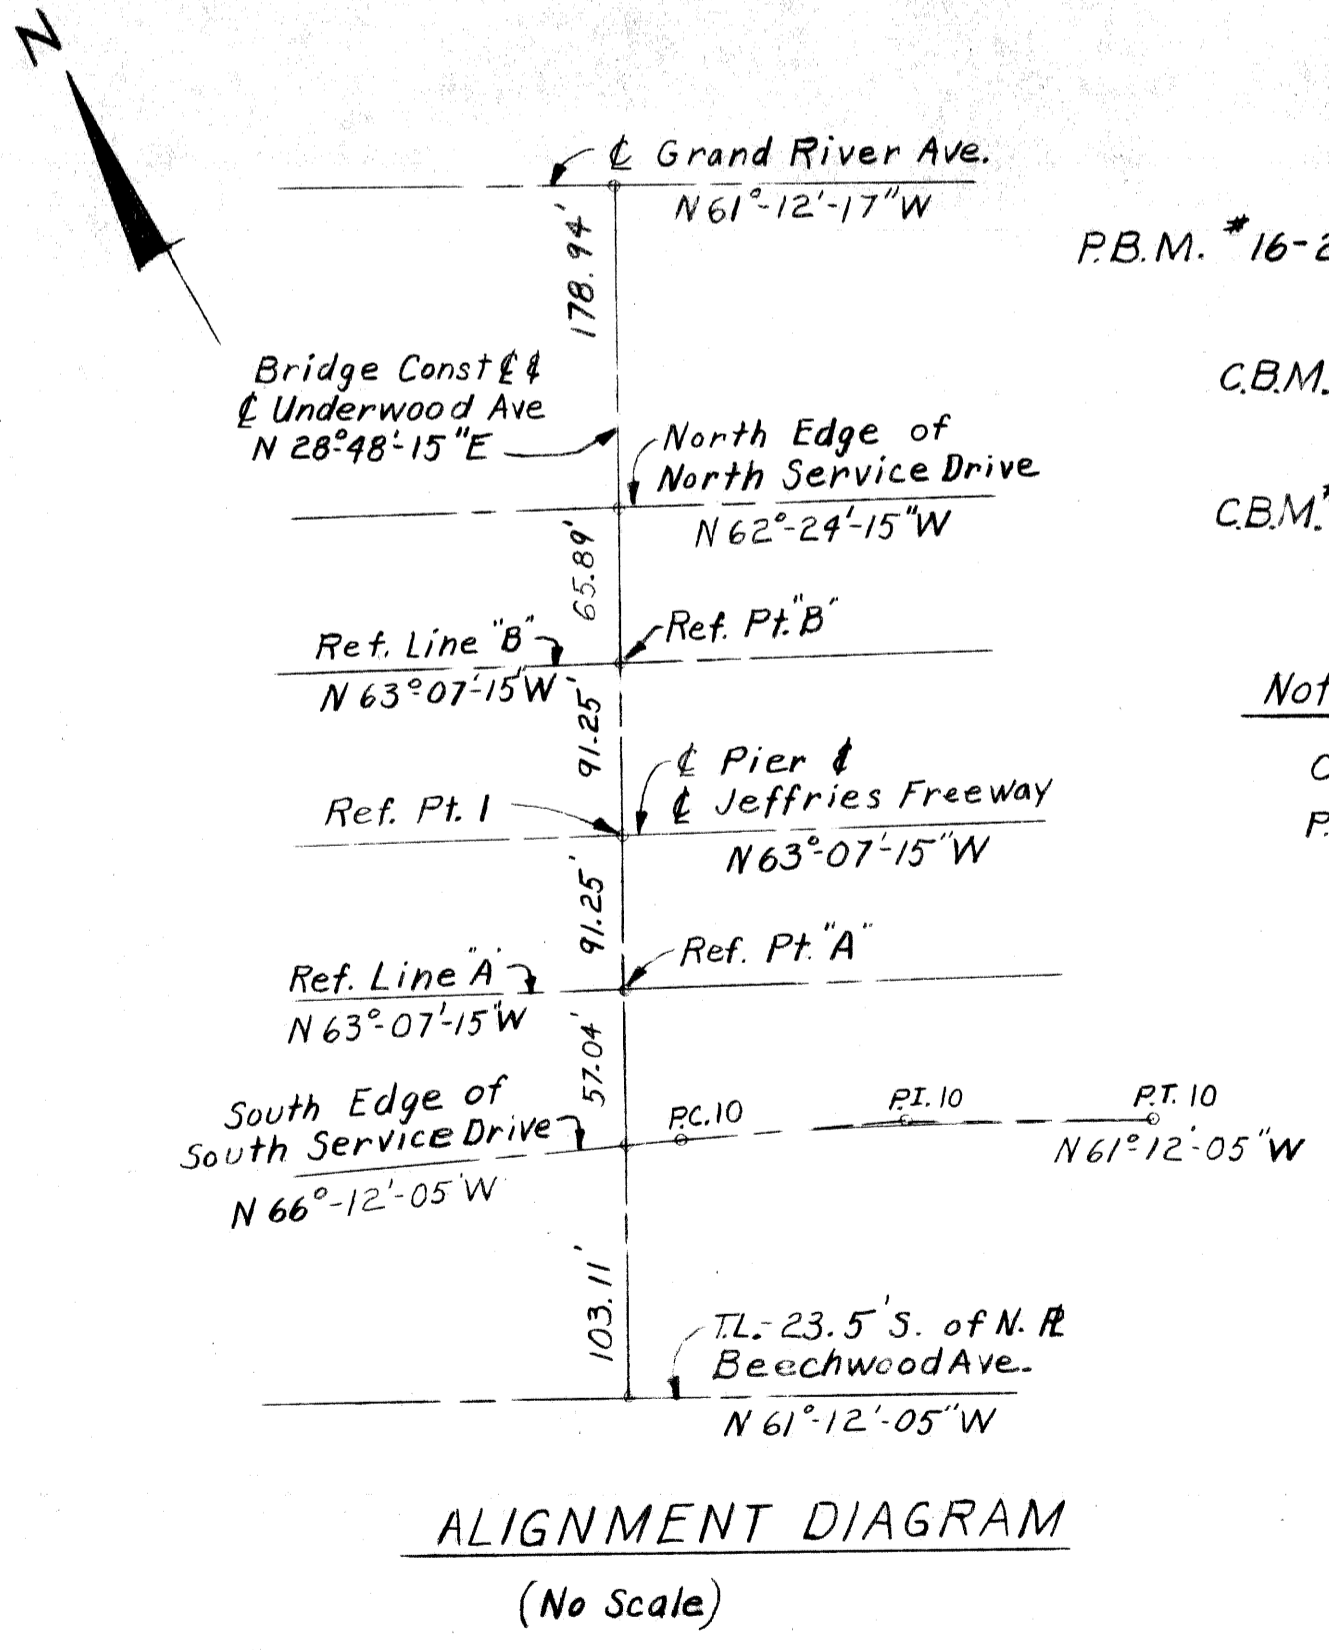 N
℄ Grand River Ave.
N 61°-12'-17"W
178.94'
P.B.M. #16-2
Bridge Const ℄ &
℄ Underwood Ave
N 28°-48'-15"E
C.B.M.
North Edge of
North Service Drive
N 62°-24'-15"W
C.B.M.#
65.89'
Ref. Line "B"
N 63°-07'-15"W
Ref. Pt. "B"
91.25'
Not
℄ Pier &
℄ Jeffries Freeway
N 63°-07'-15"W
Ref. Pt. 1
C
P.
91.25'
Ref. Pt. "A"
Ref. Line "A"
N 63°-07'-15"W
57.04'
South Edge of
South Service Drive
N 66°-12'-05"W
P.C. 10
P.I. 10
P.T. 10
N 61°-12'-05"W
103.11'
T.L.-23.5' S. of N. ⅊
Beechwood Ave.
N 61°-12'-05"W
ALIGNMENT DIAGRAM
(No Scale)